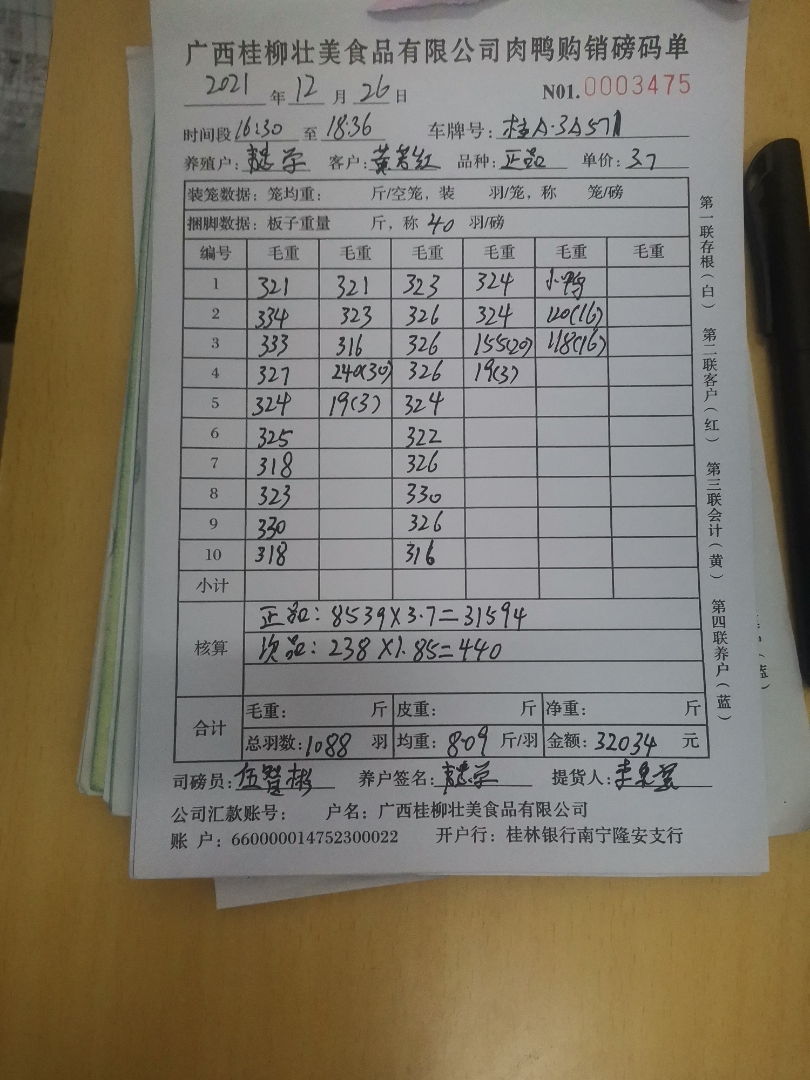 广西桂柳壮美食品有限公司肉鸭购销磅码单
2021 年 12 月 26 日 N01.0003475
时间段 16:30 至 18:36 车牌号: 桂A·3A571
养殖户: 客户: 黄 红 品种: 正品 单价: 3.7
装笼数据: 笼均重: 斤/空笼, 装 羽/笼, 称 笼/磅
捆脚数据: 板子重量 斤, 称 40 羽/磅
编号 毛重 毛重 毛重 毛重 毛重 毛重
1 321 321 323 324 小鸭
2 334 323 326 324 120(16)
3 333 316 326 155(20) 118(16)
4 327 240(30) 326 19(3)
5 324 19(3) 324
6 325 322
7 318 326
8 323 330
9 330 326
10 318 316
小计
核算 正品: 8539×3.7=31594
次品: 238×1.85=440
合计 毛重: 斤 皮重: 斤 净重: 斤
总羽数: 1088 羽 均重: 8.09 斤/羽 金额: 32034 元
司磅员: 伍智彬 养户签名: 提货人:
公司汇款账号: 户名: 广西桂柳壮美食品有限公司
账 户: 660000014752300022 开户行: 桂林银行南宁隆安支行
第一联存根(白) 第二联客户(红) 第三联会计(黄) 第四联养户(蓝)